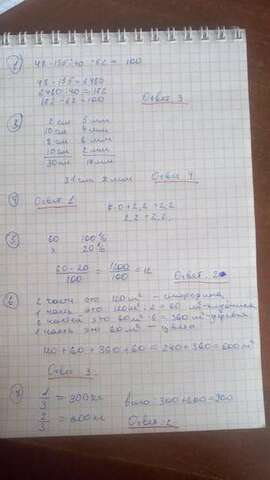 ① 48·135:40-62= 100
48·135=6480
6480:40=162
162-62=100
Ответ 3
③ 2 см 5 мм
10см 4 мм
8 см 6 мм
10см 2 мм
30см 17мм
31см 2 мм Ответ 4
④ Ответ 1
2,2=2,2
⑤ 60 100%
x 20%
60·20/100=1200/100=12 Ответ 2
⑥ 2 части это 120м² - смородина
1 часть это 120м²:2=60 м²
6 частей это 60м²·6=360м²
1 часть это 60м²
120+60+360+60=240+360=600м²
Ответ 3
⑦ 1/3=300кг Всего:300+600=900
2/3=600кг Ответ 2